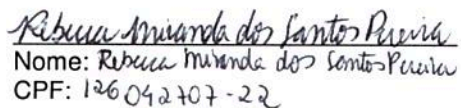 Rebecca Miranda dos Santos Pereira
Nome: Rebecca Miranda dos Santos Pereira
CPF: 126042707-22